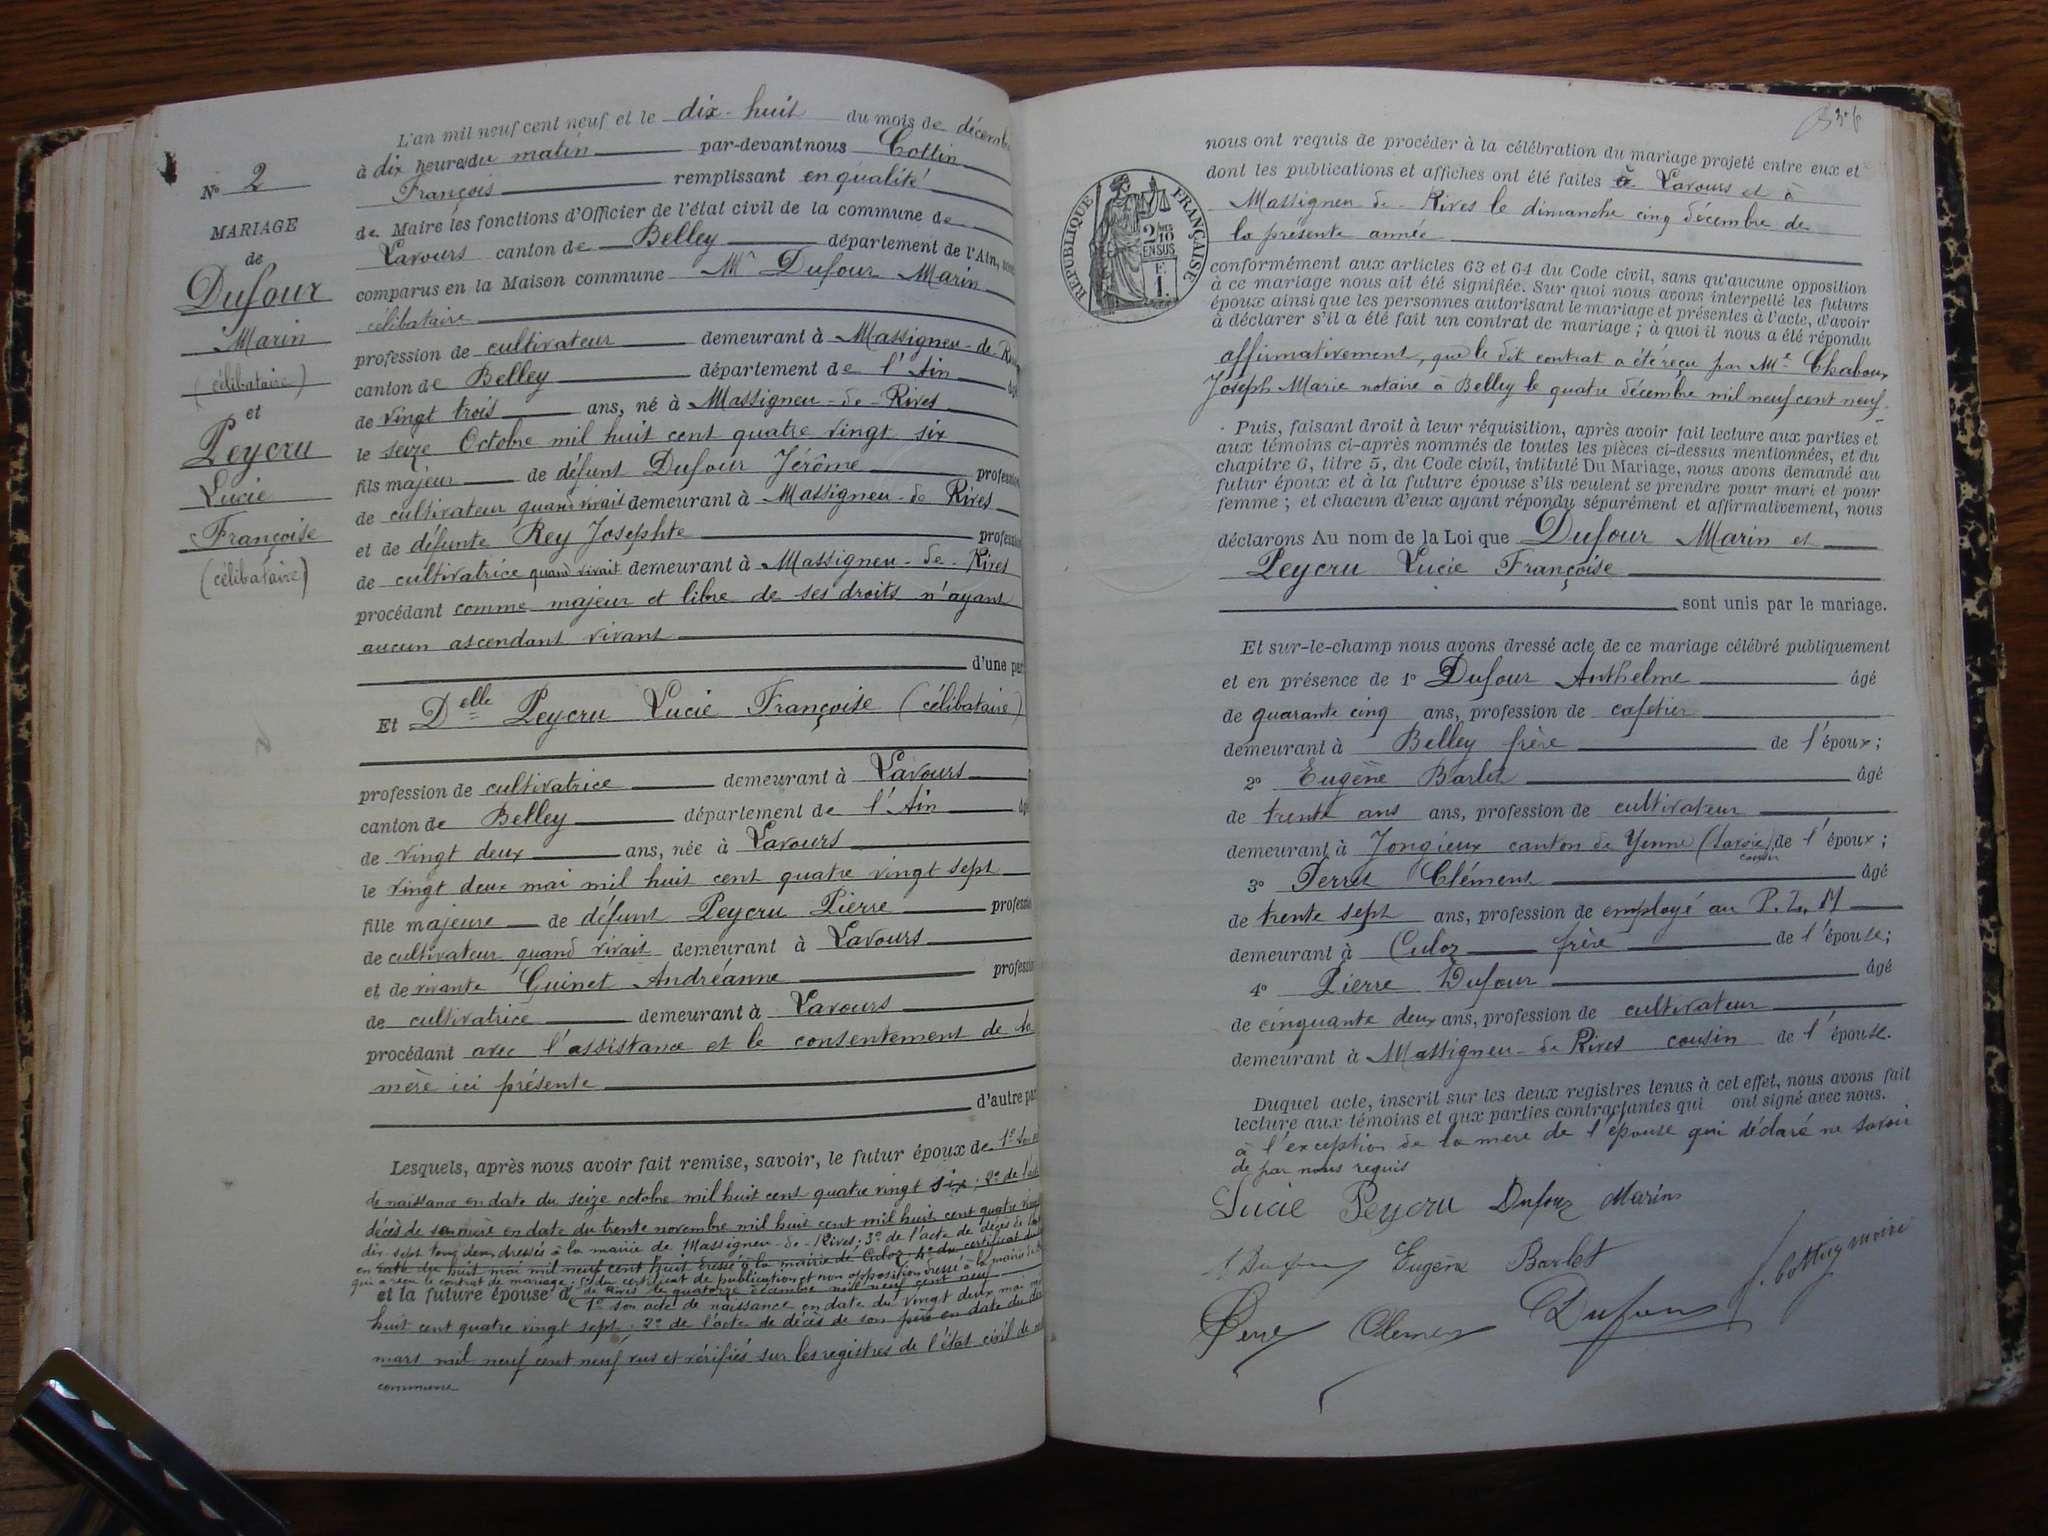 L'an mil neuf cent neuf et le dix-huit du mois de décembre
à dix heures du matin par-devant nous Cottin
François remplissant en qualité
de Maire les fonctions d'Officier de l'état civil de la commune de
Lavours canton de Belley département de l'Ain, sont
comparus en la Maison commune Mr Dufour Marin
célibataire
profession de cultivateur demeurant à Massigneu-de-Rives
canton de Belley département de l'Ain âgé
de vingt trois ans, né à Massigneu-de-Rives
le seize Octobre mil huit cent quatre vingt six
fils majeur de défunt Dufour Jérôme profession
de cultivateur quand vivait demeurant à Massigneu-de Rives
et de défunte Rey Josephte profession
de cultivatrice quand vivait demeurant à Massigneu-de-Rives
procédant comme majeur et libre de ses droits n'ayant
aucun ascendant vivant
d'une part
Et Delle Peycru Lucie Françoise (célibataire)
profession de cultivatrice demeurant à Lavours
canton de Belley département de l'Ain âgé
de vingt deux ans, née à Lavours
le vingt deux mai mil huit cent quatre vingt sept
fille majeure de défunt Peycru Pierre profession
de cultivateur quand vivait demeurant à Lavours
et de vivante Guinet Andréanne profession
de cultivatrice demeurant à Lavours
procédant avec l'assistance et le consentement de sa
mère ici présente
d'autre part
Lesquels, après nous avoir fait remise, savoir, le futur époux de 1º son
de naissance en date du seize octobre mil huit cent quatre vingt six; 2º de l'acte
décès de sa mère en date du trente novembre mil huit cent mil huit cent quatre vingt
dix-sept tous deux dressés à la mairie de Massigneu-de-Rives; 3º de l'acte de décès de
en date du huit mai mil neuf cent huit dressé à la mairie de Culoz 4º du certificat du
qui a reçu le contrat de mariage; 5º du certificat de publication et non opposition dressé à la mairie de
de Rives le quatorze décembre mil neuf cent neuf
et la future épouse d 1º son acte de naissance en date du vingt deux mai mil
huit cent quatre vingt sept; 2º de l'acte de décès de son père en date du
mars mil neuf cent neuf vus et vérifiés sur les registres de l'état civil de
commune
Nº 2
MARIAGE
de
Dufour
Marin
(célibataire)
et
Peycru
Lucie
Françoise
(célibataire)
RÉPUBLIQUE FRANÇAISE
2/10
EN SUS
F.
1.
nous ont requis de procéder à la célébration du mariage projeté entre eux et
dont les publications et affiches ont été faites à Lavours et à
Massigneu-de-Rives le dimanche cinq décembre de
la présente année
conformément aux articles 63 et 64 du Code civil, sans qu'aucune opposition
à ce mariage nous ait été signifiée. Sur quoi nous avons interpellé les futurs
époux ainsi que les personnes autorisant le mariage et présentes à l'acte, d'avoir
à déclarer s'il a été fait un contrat de mariage; à quoi il nous a été répondu
affirmativement, que le dit contrat a été reçu par Me Chaboux
Joseph Marie notaire à Belley le quatre décembre mil neuf cent neuf.
Puis, faisant droit à leur réquisition, après avoir fait lecture aux parties et
aux témoins ci-après nommés de toutes les pièces ci-dessus mentionnées, et du
chapitre 6, titre 5, du Code civil, intitulé Du Mariage, nous avons demandé au
futur époux et à la future épouse s'ils veulent se prendre pour mari et pour
femme; et chacun d'eux ayant répondu séparément et affirmativement, nous
déclarons Au nom de la Loi que Dufour Marin et
Peycru Lucie Françoise
sont unis par le mariage.
Et sur-le-champ nous avons dressé acte de ce mariage célébré publiquement
et en présence de 1º Dufour Anthelme âgé
de quarante cinq ans, profession de cafetier
demeurant à Belley frère de l'époux;
2º Eugène Barlet âgé
de trente ans ans, profession de cultivateur
demeurant à Jongieux canton de Yenne (Savoie) cousin de l'époux;
3º Perret Clément âgé
de trente sept ans, profession de employé au P.L.M
demeurant à Culoz frère de l'épouse;
4º Pierre Dufour âgé
de cinquante deux ans, profession de cultivateur
demeurant à Massigneu-de Rives cousin de l'épouse.
Duquel acte, inscrit sur les deux registres tenus à cet effet, nous avons fait
lecture aux témoins et aux parties contractantes qui ont signé avec nous.
à l'exception de la mère de l'épouse qui déclaré ne savoir
de par nous requis
Lucie Peycru Dufour Marin
Eugène Barlet
Clément Dufour